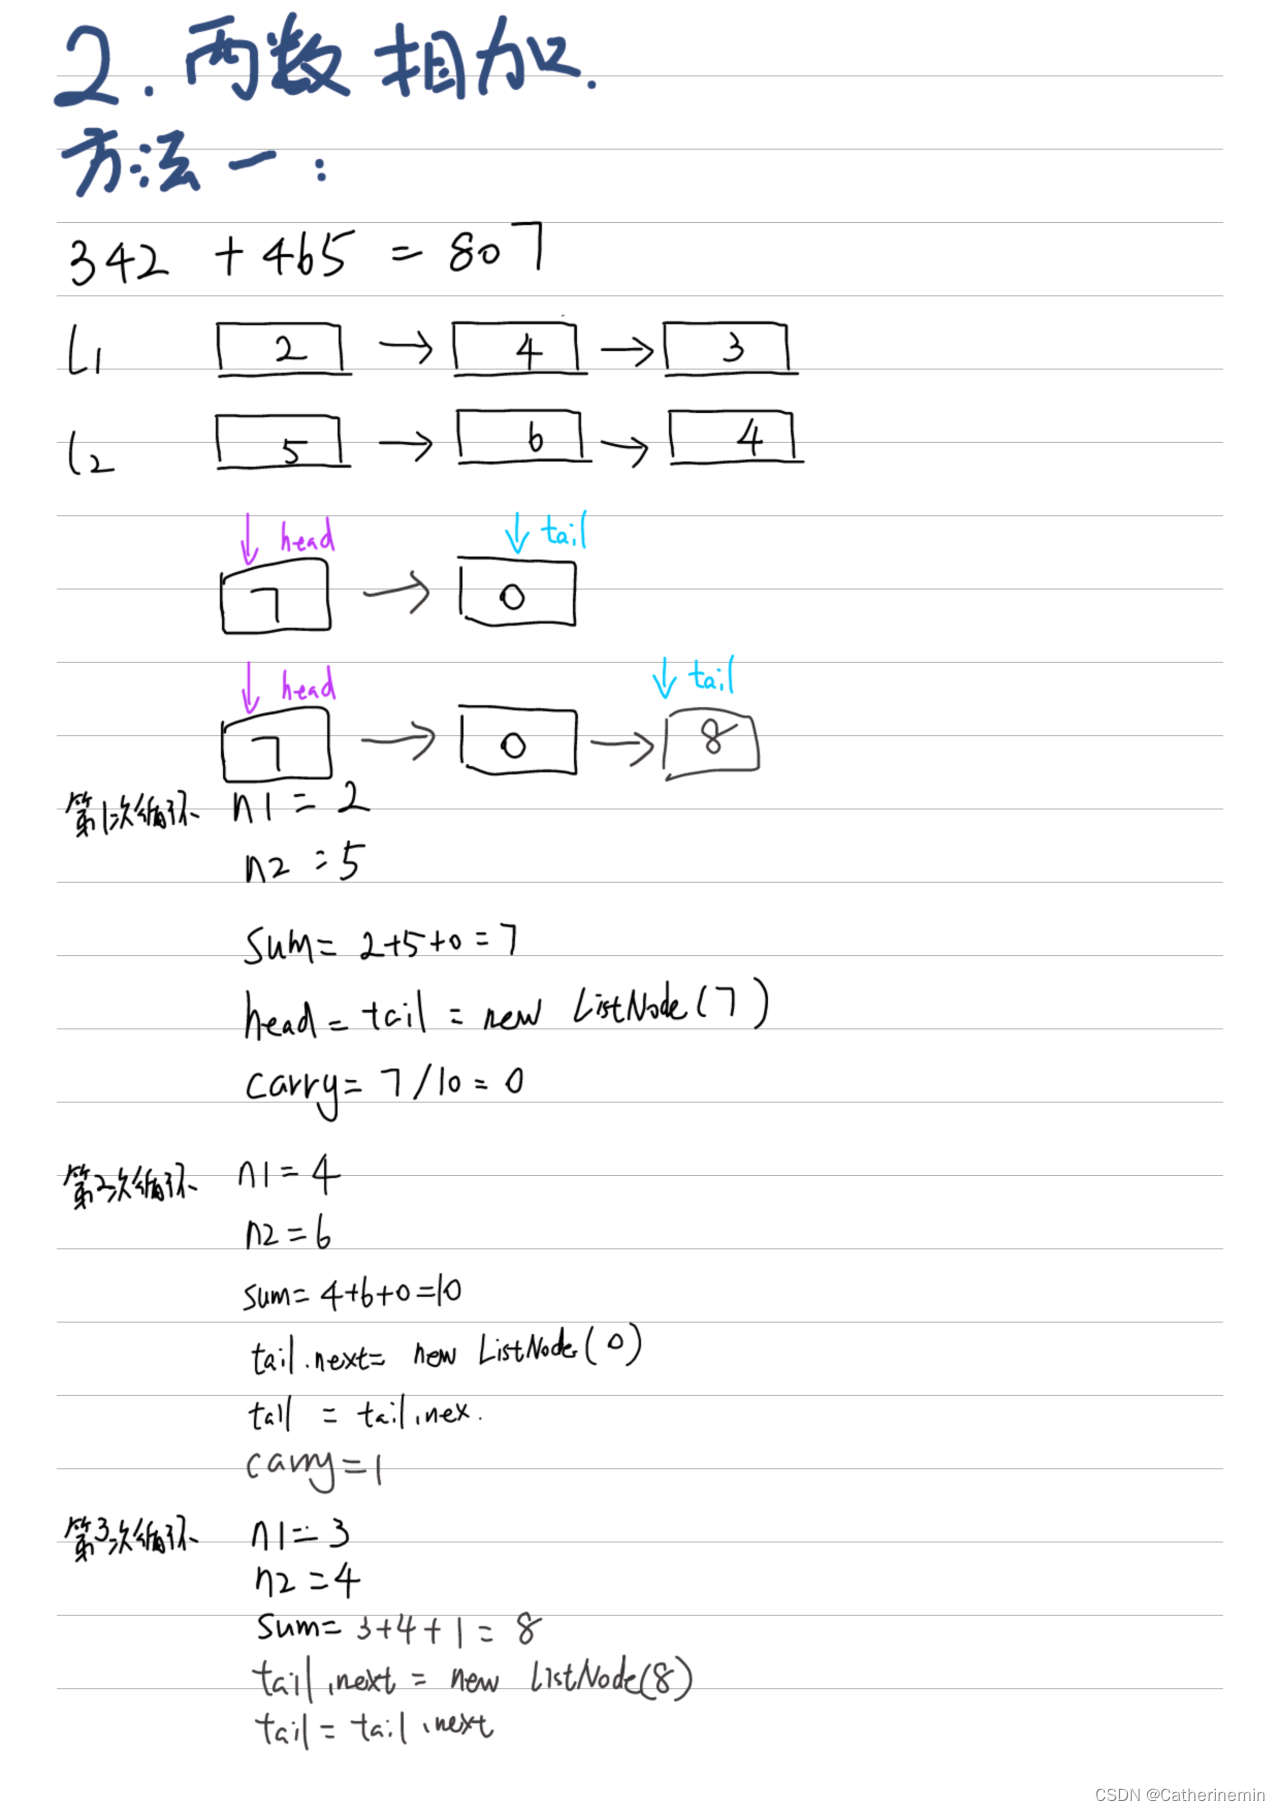 2. 两数相加.
方法一:
342 + 465 = 807
l1 2 → 4 → 3
l2 5 → 6 → 4
↓ head ↓ tail
7 → 0
↓ head ↓ tail
7 → 0 → 8
第1次循环 n1 = 2
n2 = 5
sum= 2+5+0 = 7
head = tail = new ListNode(7)
carry= 7/10 = 0
第2次循环 n1 = 4
n2 = 6
sum= 4+6+0=10
tail.next= new ListNode(0)
tail = tail.nex.
carry=1
第3次循环 n1 = 3
n2 = 4
sum= 3+4+1 = 8
tail.next = new ListNode(8)
tail = tail.next
CSDN @Catherinemin